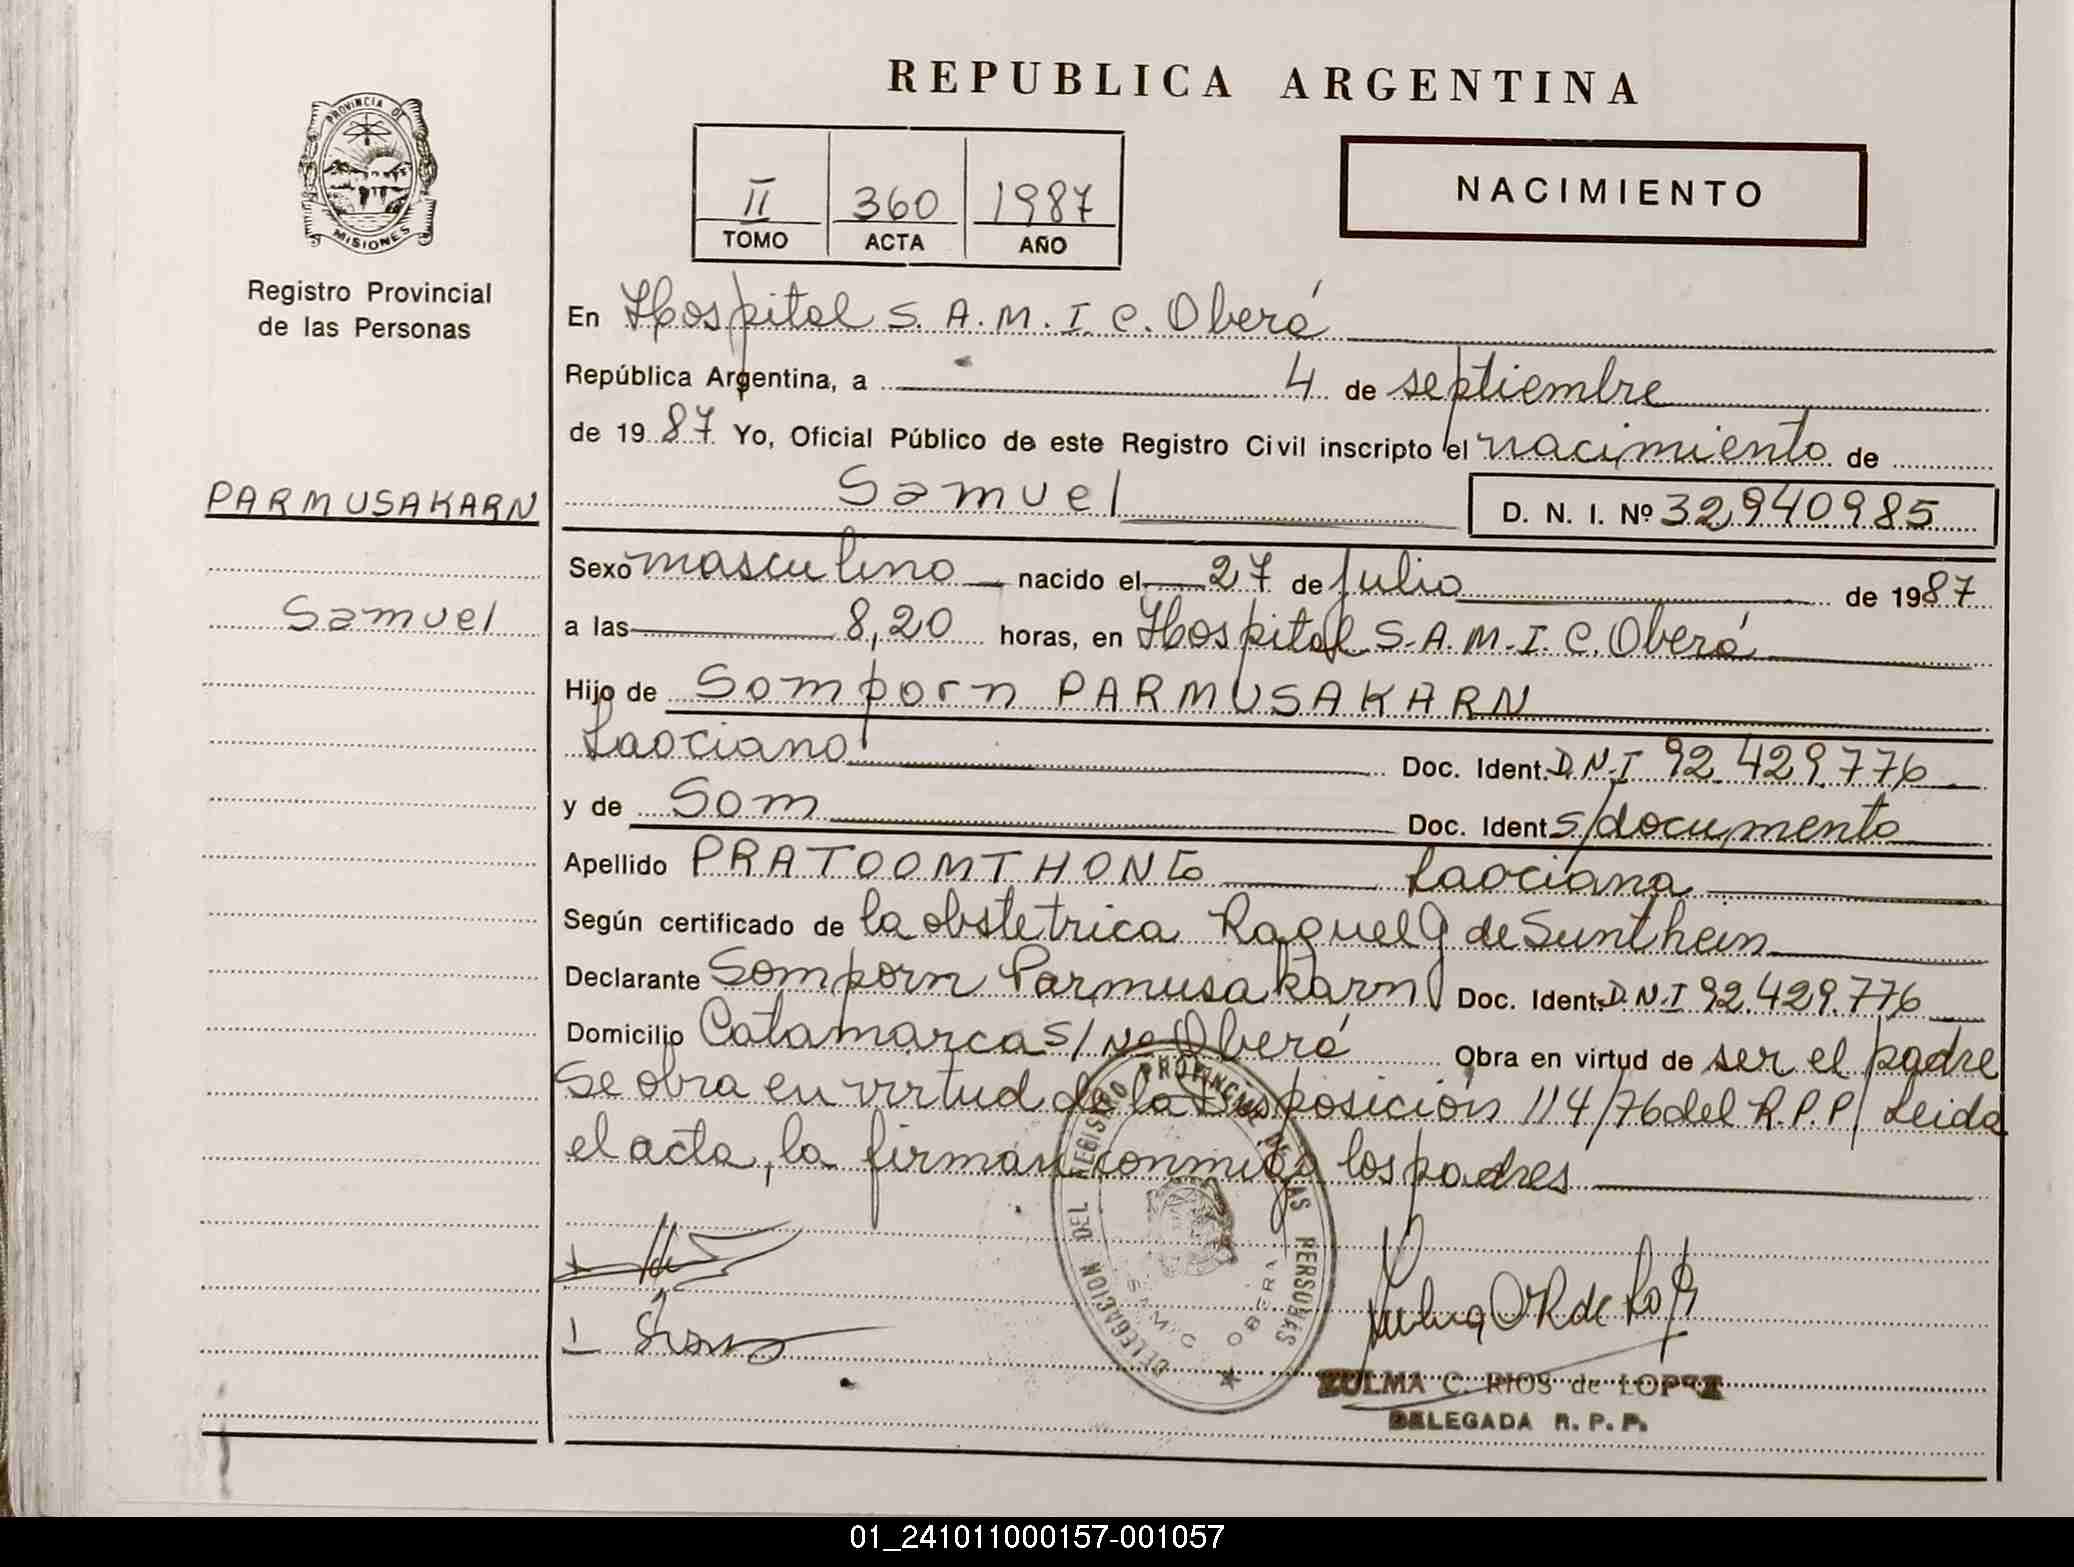 REPUBLICA ARGENTINA
PROVINCIA DE
MISIONES
Registro Provincial
de las Personas
II 360 1987
TOMO ACTA AÑO
NACIMIENTO
PARMUSAKARN
Samuel
En Hospital S.A.M.I.C. Oberá
República Argentina, a 4 de septiembre
de 1987 Yo, Oficial Público de este Registro Civil inscripto el nacimiento de
Samuel D. N. I. Nº 32940985
Sexo masculino nacido el 27 de Julio de 1987
a las 8,20 horas, en Hospital S.A.M.I.C. Oberá
Hijo de Somporn PARMUSAKARN
Laociano Doc. Ident. D.N.I 92.429.776
y de Som Doc. Ident. s/documento
Apellido PRATOOMTHONG Laociana
Según certificado de la obstetrica Raquel G de Sunthein
Declarante Somporn Parmusakarn Doc. Ident. D.N.I 92.429.776
Domicilio Catamarca S/Nº Oberá Obra en virtud de ser el padre
Se obra en virtud de la Disposición 114/76 del R.P.P. Leida
el acta, la firman conmigo los padres
DELEGACION DEL REGISTRO PROVINCIAL DE LAS PERSONAS
SAMIC OBERA
ZULMA C. RIOS de LOPEZ
DELEGADA R. P. P.
01_241011000157-001057